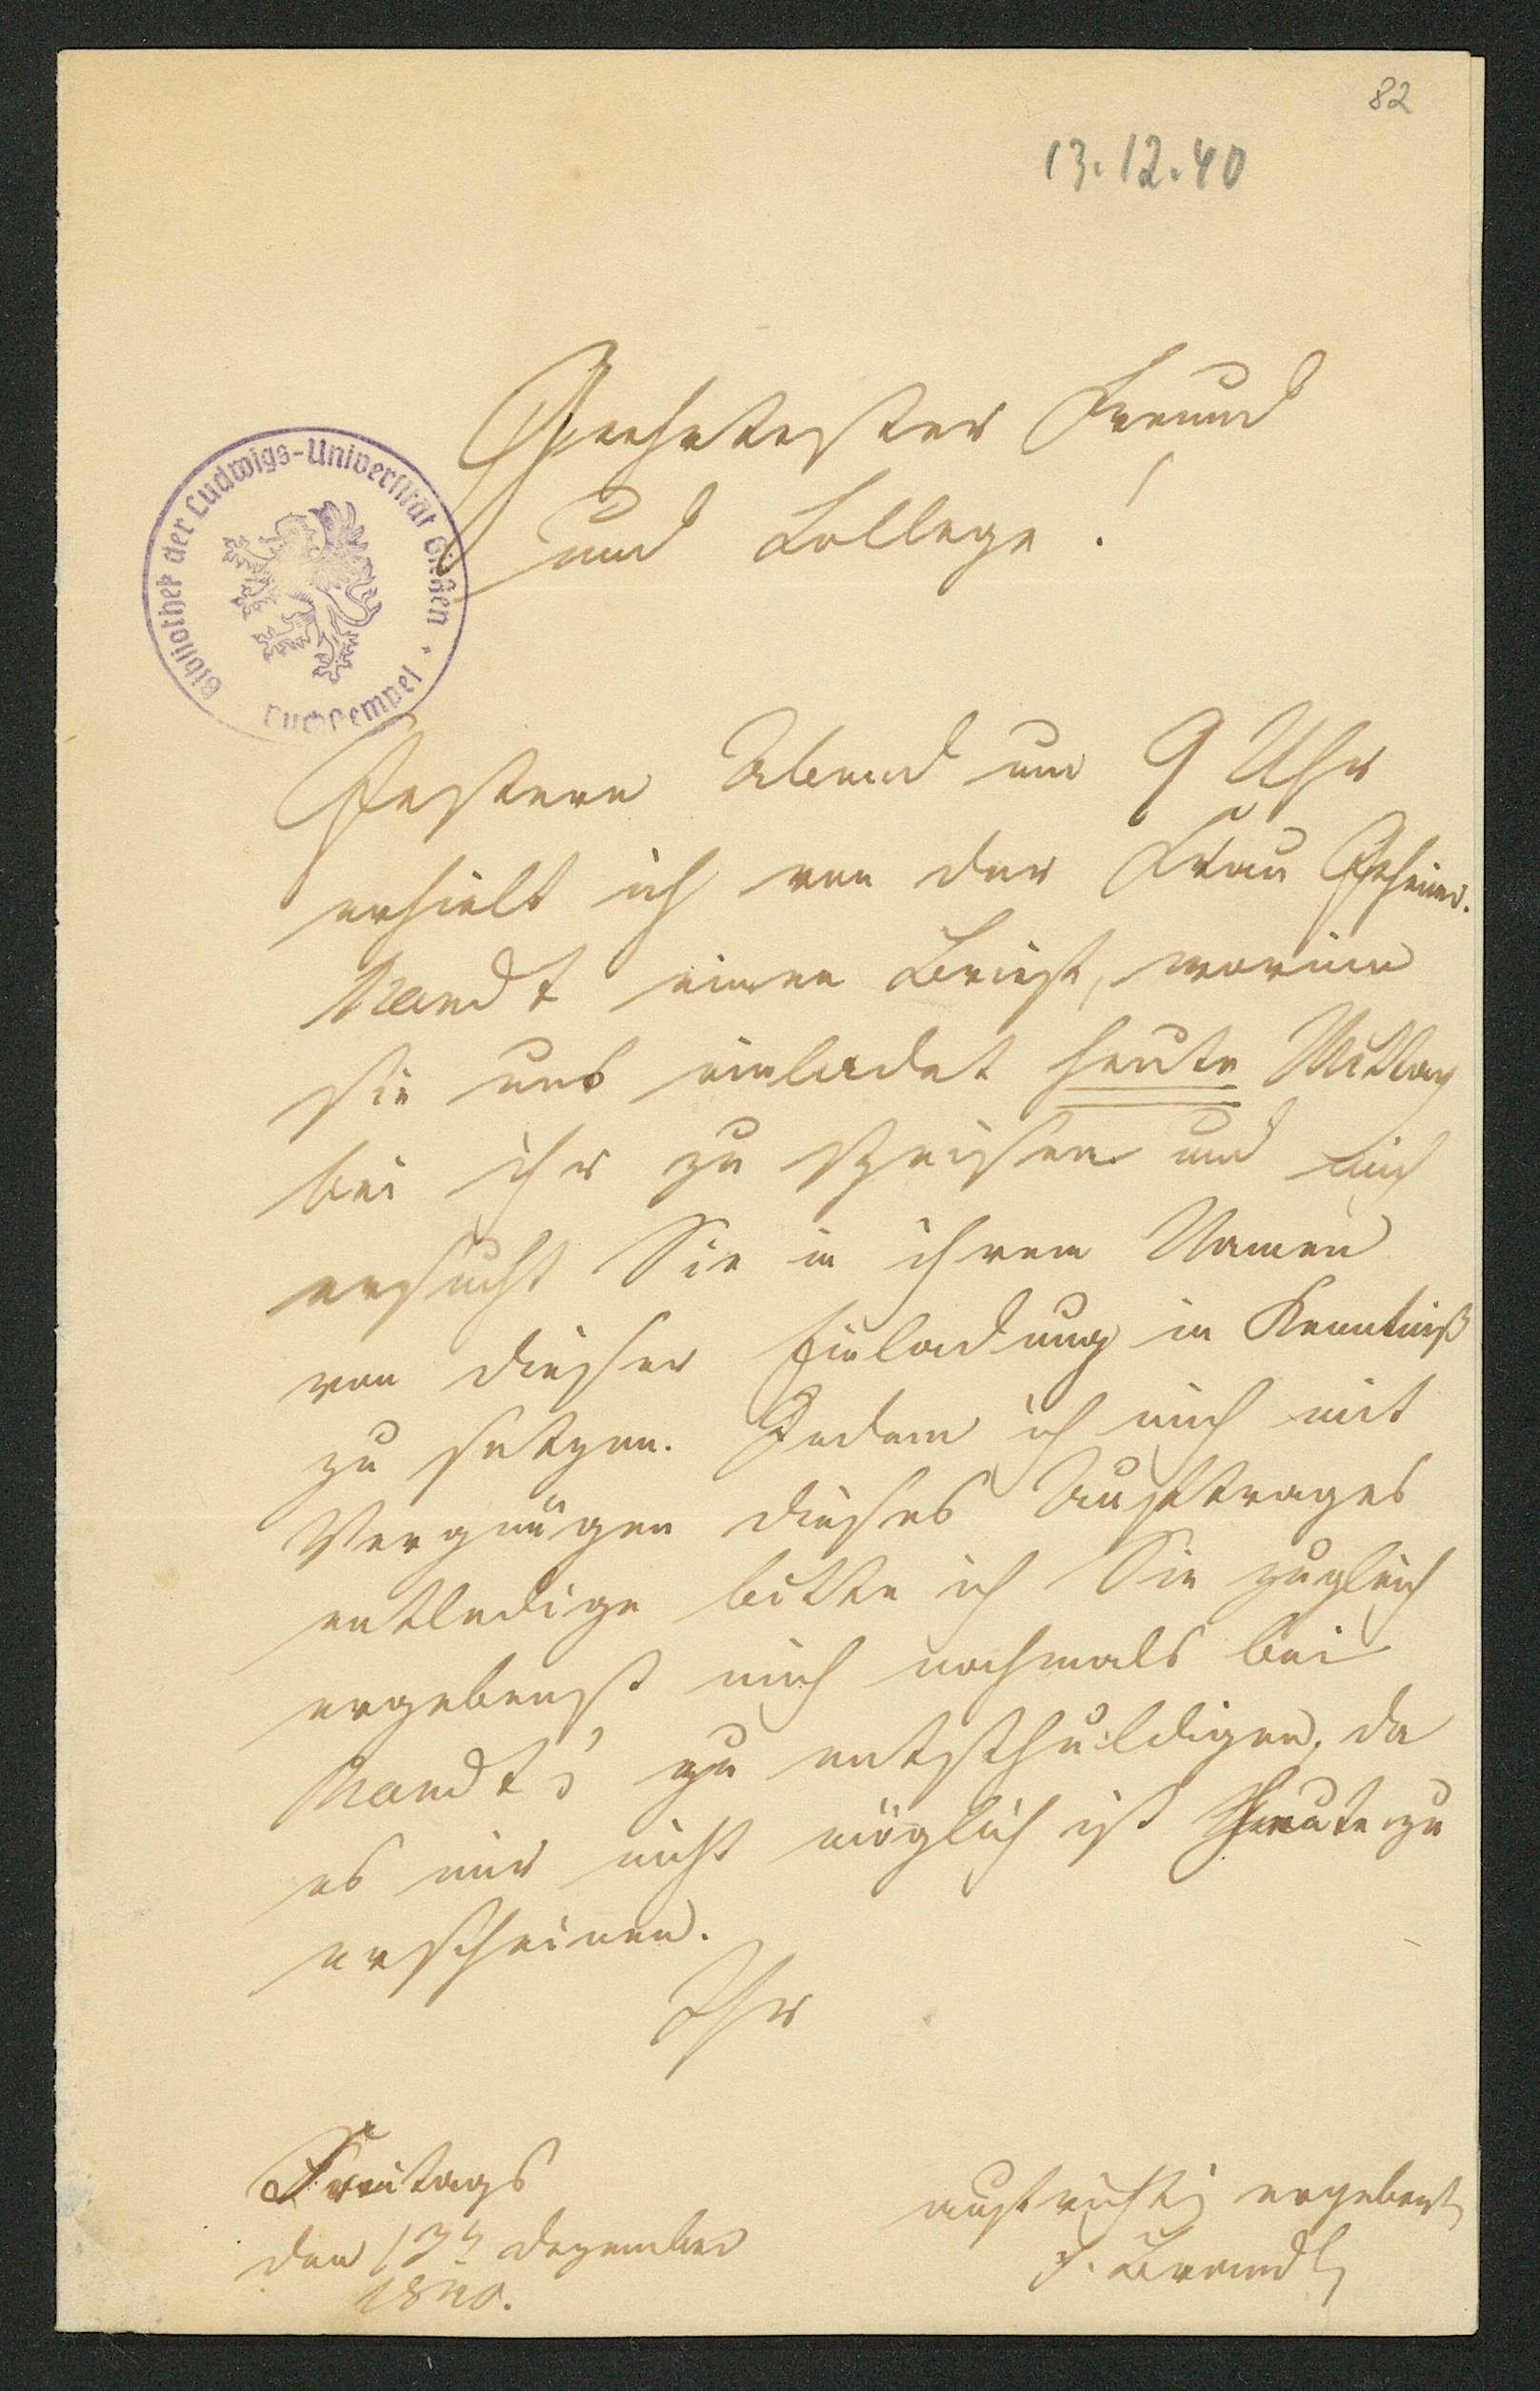 82
13.12.40
Geehrtester Freund
und College!
Bibliothek der Ludwigs-Universität Gießen
Gestern Abend um 9 Uhr
erhielt ich von der Frau Geheimr.
Mandt einen Brief, worinn
sie uns einladet heute Mittag
bei ihr zu speisen und mich
ersucht Sie in ihrem Namen
von dieser Einladung in Kenntniß
zu setzen. Indem ich mich mit
Vergnügen dieses Auftrages
entledige bitte ich Sie zugleich
ergebenst mich nochmals bei
Mandt's zu entschuldigen, da
es mir nicht möglich ist heute zu
erscheinen.
Ihr
Freitags
den 13ten Dezember
1840.
aufrichtig ergebenst
J. Brandt